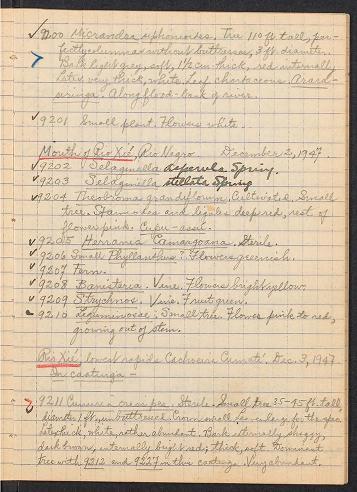 9200 Micrandra siphonioides. Tree 110 ft. tall, per-
fectly columnar without buttresses, 3 ft. diameter.
Bark light grey, soft, 1½ cm. thick, red internally,
Latex very thick, white. Leaf chartaceous. Arara-
seringa. Along flood-bank of river.
9201 Small plant. Flowers white.
Mouth of Rio Xié, Rio Negro December 2, 1947.
9202 Selaginella asperula Spring.
9203 Selaginella stellata Spring
9204 Theobroma grandiflorum. Cultivated. Small
tree. Staminodes and ligules deep red, rest of
flower pink. Cupu-assú.
9205 Herrania Camargoana. Sterile.
9206 Small Phyllanthus: Flowers greenish.
9207 Fern.
9208 Banisteria. Vine. Flowers bright yellow.
9209 Strychnos. Vine. Fruit green.
9210 Leguminosae: Small tree. Flower pink to red,
growing out of stem.
Rio Xié, lowest rapids Cachoeira Cumatí. Dec. 3, 1947
In caatinga —
9211 Cunuria crassipes. Sterile. Small tree 35-45 ft. tall,
diameter 1 ft., unbuttressed. Crown small
latex thick, white, rather abundant. Bark externally shaggy,
dark brown, internally bright red; thick, soft. Dominant
tree with 9212 and 9227 in this caatinga. Very abundant.